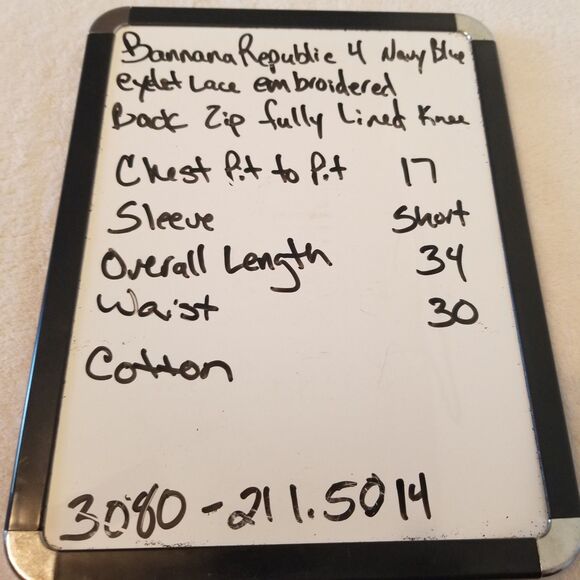 Bannana Republic 4 Navy Blue
eyelet Lace embroidered
Back Zip fully Lined Knee
Chest Pit to Pit 17
Sleeve Short
Overall Length 34
Waist 30
Cotton
3080-211.5014